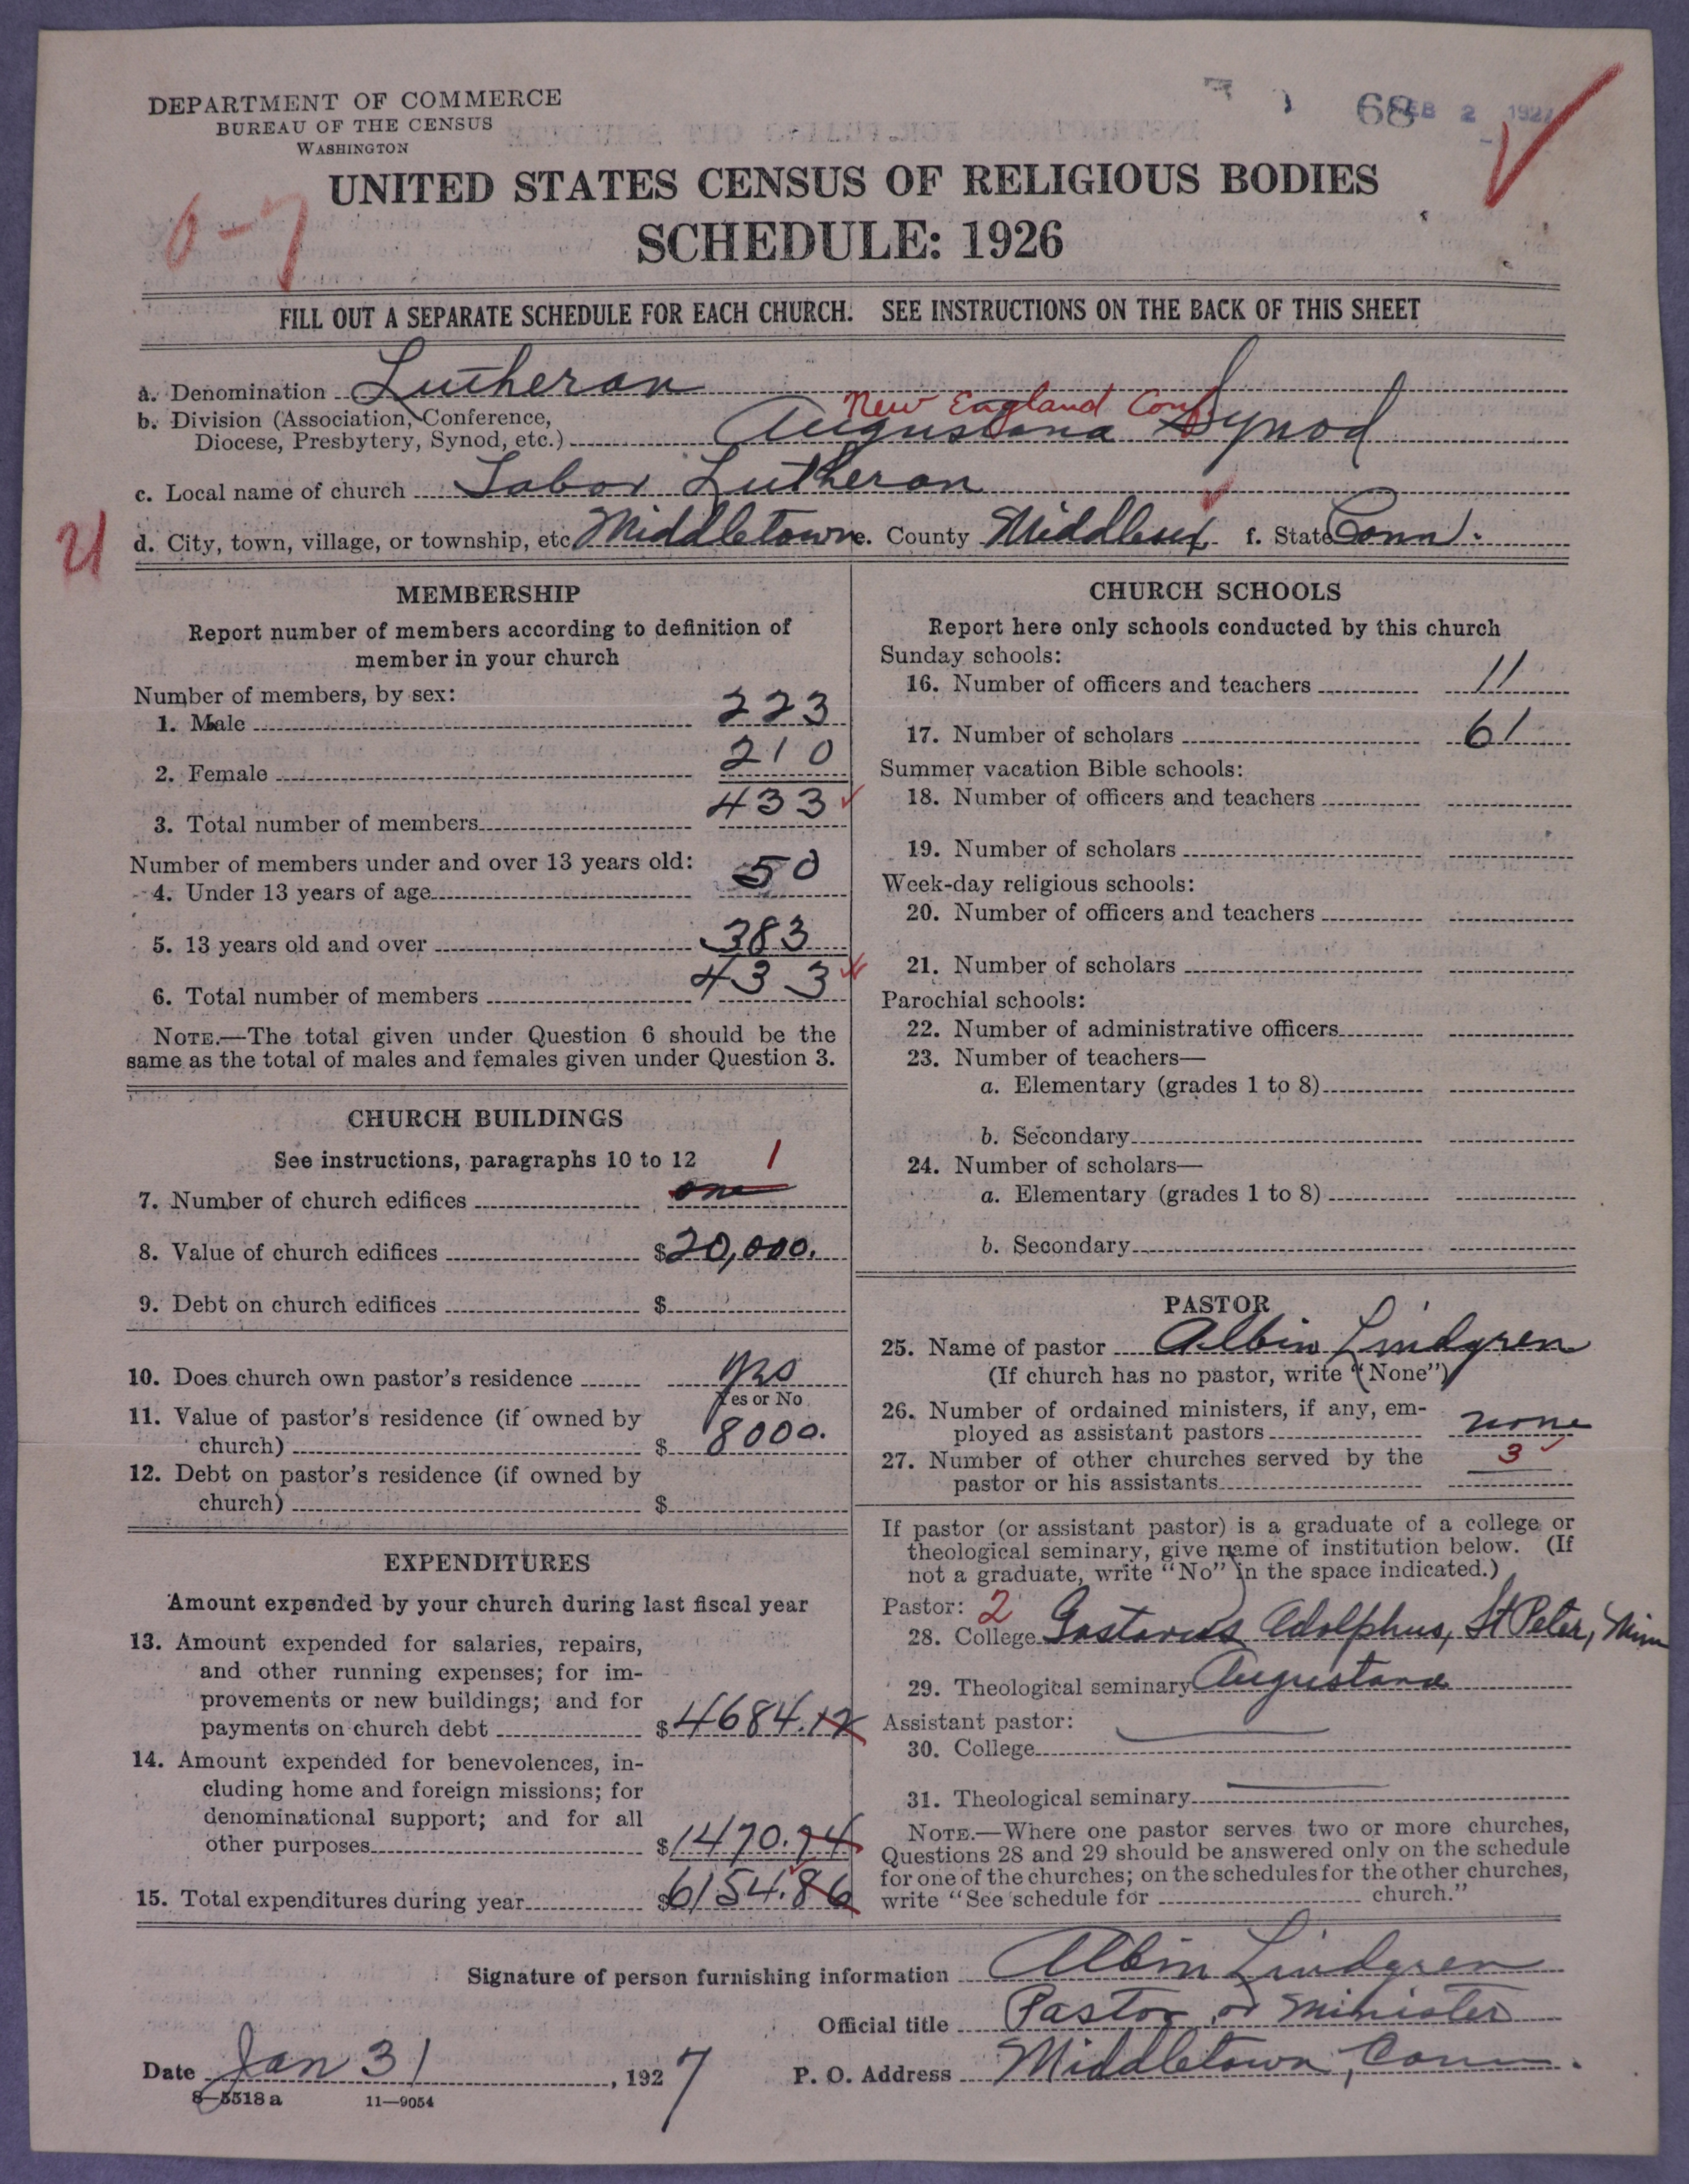 DEPARTMENT OF COMMERCE
BUREAU OF THE CENSUS
WASHINGTON
68
FEB 2 1927
UNITED STATES CENSUS OF RELIGIOUS BODIES
SCHEDULE: 1926
FILL OUT A SEPARATE SCHEDULE FOR EACH CHURCH. SEE INSTRUCTIONS ON THE BACK OF THIS SHEET
a. Denomination Lutheran
New England Conf.
b. Division (Association, Conference,
Diocese, Presbytery, Synod, etc.) Augustana Synod
c. Local name of church Tabor Lutheran
d. City, town, village, or township, etc Middletown e. County Middlesex f. State Conn.
MEMBERSHIP
Report number of members according to definition of
member in your church
Number of members, by sex:
1. Male 223
2. Female 210
3. Total number of members 433
Number of members under and over 13 years old:
4. Under 13 years of age 50
5. 13 years old and over 383
6. Total number of members 433
NOTE.—The total given under Question 6 should be the
same as the total of males and females given under Question 3.
CHURCH BUILDINGS
See instructions, paragraphs 10 to 12 1
7. Number of church edifices one
8. Value of church edifices $20,000.
9. Debt on church edifices $
10. Does church own pastor's residence yes
Yes or No
11. Value of pastor's residence (if owned by
church) $ 8000.
12. Debt on pastor's residence (if owned by
church) $
EXPENDITURES
Amount expended by your church during last fiscal year
13. Amount expended for salaries, repairs,
and other running expenses; for im-
provements or new buildings; and for
payments on church debt $4684.12
14. Amount expended for benevolences, in-
cluding home and foreign missions; for
denominational support; and for all
other purposes $1470.74
15. Total expenditures during year $6154.86
CHURCH SCHOOLS
Report here only schools conducted by this church
Sunday schools:
16. Number of officers and teachers 11
17. Number of scholars 61
Summer vacation Bible schools:
18. Number of officers and teachers
19. Number of scholars
Week-day religious schools:
20. Number of officers and teachers
21. Number of scholars
Parochial schools:
22. Number of administrative officers
23. Number of teachers—
a. Elementary (grades 1 to 8)
b. Secondary
24. Number of scholars—
a. Elementary (grades 1 to 8)
b. Secondary
PASTOR
25. Name of pastor Albin Lindgren
(If church has no pastor, write "None")
26. Number of ordained ministers, if any, em-
ployed as assistant pastors none
27. Number of other churches served by the
pastor or his assistants 3
If pastor (or assistant pastor) is a graduate of a college or
theological seminary, give name of institution below. (If
not a graduate, write "No" in the space indicated.)
Pastor: 2
28. College Gustavus Adolphus, St Peter, Minn
29. Theological seminary Augustana
Assistant pastor:
30. College
31. Theological seminary
NOTE.—Where one pastor serves two or more churches,
Questions 28 and 29 should be answered only on the schedule
for one of the churches; on the schedules for the other churches,
write "See schedule for church."
Signature of person furnishing information Albin Lindgren
Official title Pastor or Minister
Date Jan 31, 1927 P. O. Address Middletown, Conn.
8—5518 a 11—9054